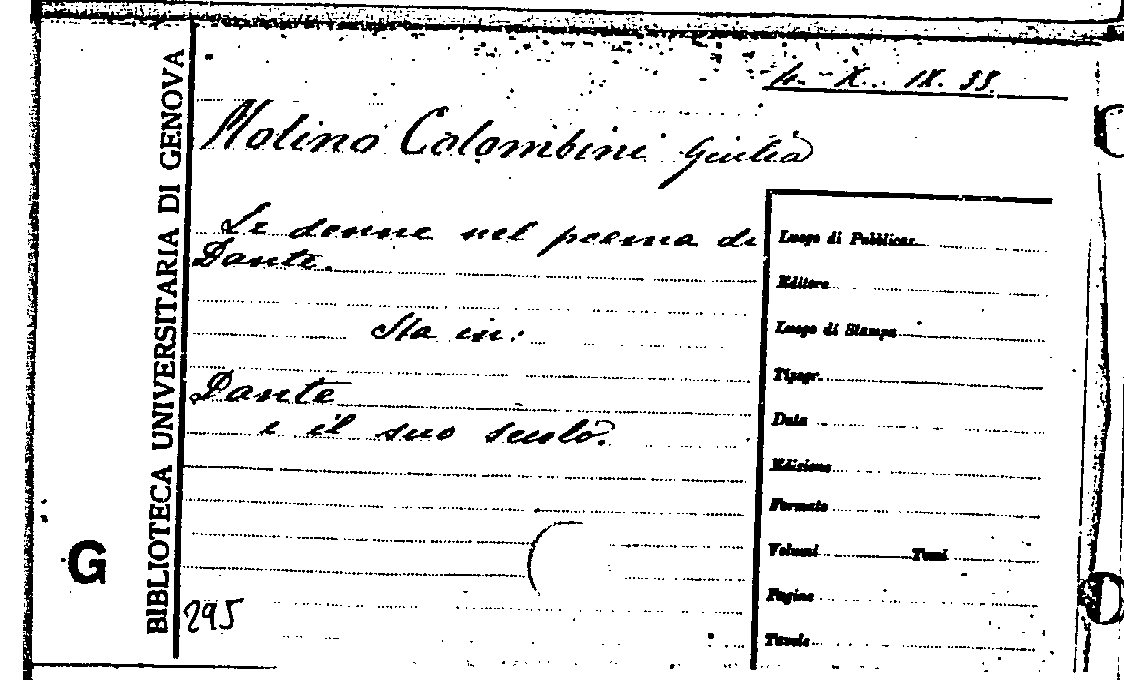 4. X. IX. 33.
Molino Colombini Giulia
Le donne nel poema di
Dante.
Sta in:
Dante
e il suo secolo.
BIBLIOTECA UNIVERSITARIA DI GENOVA
G
295
Luogo di Pubblicaz.
Editore
Luogo di Stampa
Tipogr.
Data
Edizione
Formato
Volumi Tomi
Pagine
Tavole